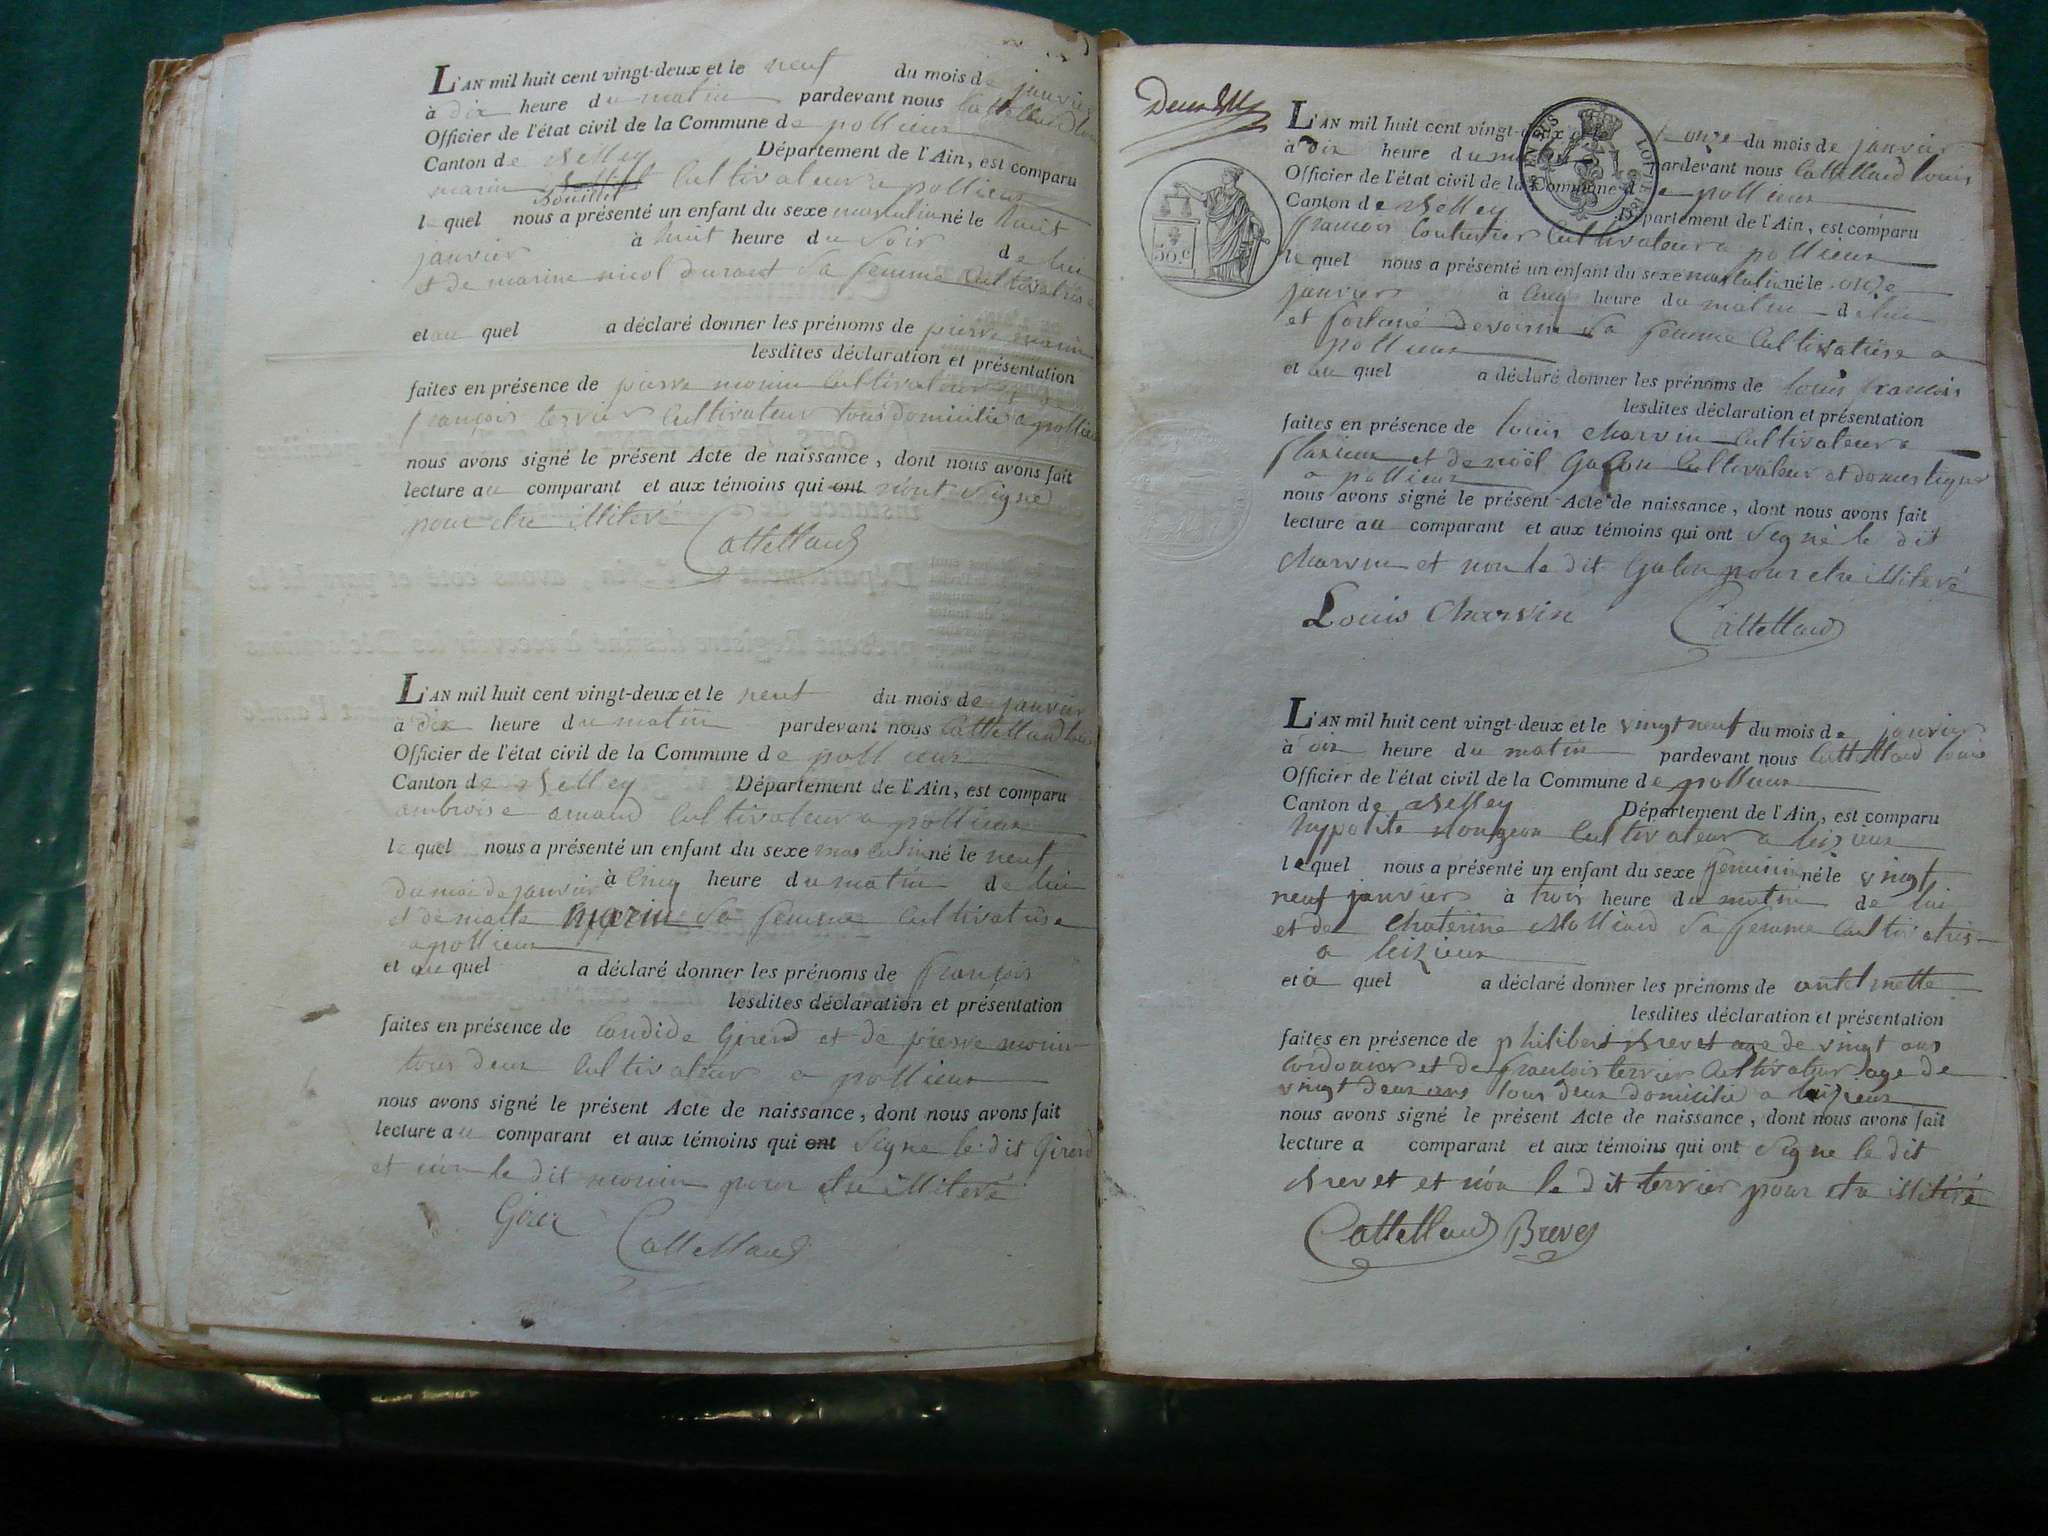 L'AN mil huit cent vingt-deux et le neuf du mois de janvier
à dix heure du matin pardevant nous Cattelland louis
Officier de l'état civil de la Commune de pollieux
Canton de Belley Département de l'Ain, est comparu
marin Bouillit cultivateur a pollieux
le quel nous a présenté un enfant du sexe masculin né le huit
janvier à huit heure du soir de lui
et de marine nicol durant sa femme cultivatrise
et au quel a déclaré donner les prénoms de pierre marin
lesdites déclaration et présentation
faites en présence de pierre monin cultivateur
françois terrier cultivateur tous domicilié a pollieux
nous avons signé le présent Acte de naissance, dont nous avons fait
lecture au comparant et aux témoins qui ont n'ont signé
pour etre illiteré
Cattelland
L'AN mil huit cent vingt-deux et le neuf du mois de janvier
à dix heure du matin pardevant nous Cattelland louis
Officier de l'état civil de la Commune de pollieux
Canton de Belley Département de l'Ain, est comparu
ambroise amand cultivateur a pollieux
le quel nous a présenté un enfant du sexe masculin né le neuf
du moi de janvier à cinq heure du matin de lui
et de marie marin sa femme cultivatrise
a pollieux
et au quel a déclaré donner les prénoms de françois
lesdites déclaration et présentation
faites en présence de Candide Girerd et de pierre monin
tous deux cultivateur a pollieux
nous avons signé le présent Acte de naissance, dont nous avons fait
lecture au comparant et aux témoins qui ont signe le dit Girerd
et non le dit monin pour etre illiteré
Girer Cattelland
Deux
L'AN mil huit cent vingt-deux et le onze du mois de janvier
à dix heure du matin pardevant nous Cattelland louis
Officier de l'état civil de la Commune de pollieux
Canton de Belley Département de l'Ain, est comparu
françois Couturier cultivateur a pollieux
50.c
le quel nous a présenté un enfant du sexe masculin né le onze
janvier à cinq heure du matin de lui
et fortuné devoirin sa femme cultivatrise a
pollieux
et au quel a déclaré donner les prénoms de louis françois
lesdites déclaration et présentation
faites en présence de louis charvin cultivateur a
flaxieux et de noël Galon cultivateur et domestique
a pollieux
nous avons signé le présent Acte de naissance, dont nous avons fait
lecture au comparant et aux témoins qui ont signé le dit
charvin et non le dit Galon pour etre illiteré
Louis Charvin Cattelland
L'AN mil huit cent vingt-deux et le vingt neuf du mois de janvier
à dix heure du matin pardevant nous Cattelland louis
Officier de l'état civil de la Commune de pollieux
Canton de Belley Département de l'Ain, est comparu
hypolite cultivateur a leizieux
le quel nous a présenté un enfant du sexe feminin né le vingt
neuf janvier à trois heure du matin de lui
et de Chaterine Molliard sa femme cultivatrise
a leizieux
et a quel a déclaré donner les prénoms de antelmette
lesdites déclaration et présentation
faites en présence de philibert brevet age de vingt ans
cordonier et de françois terrier cultivateur age de
vingt deux ans tous deux domicilié a leizieux
nous avons signé le présent Acte de naissance, dont nous avons fait
lecture a comparant et aux témoins qui ont signe le dit
brevet et non le dit terrier pour etre illitéré
Cattelland Brevet